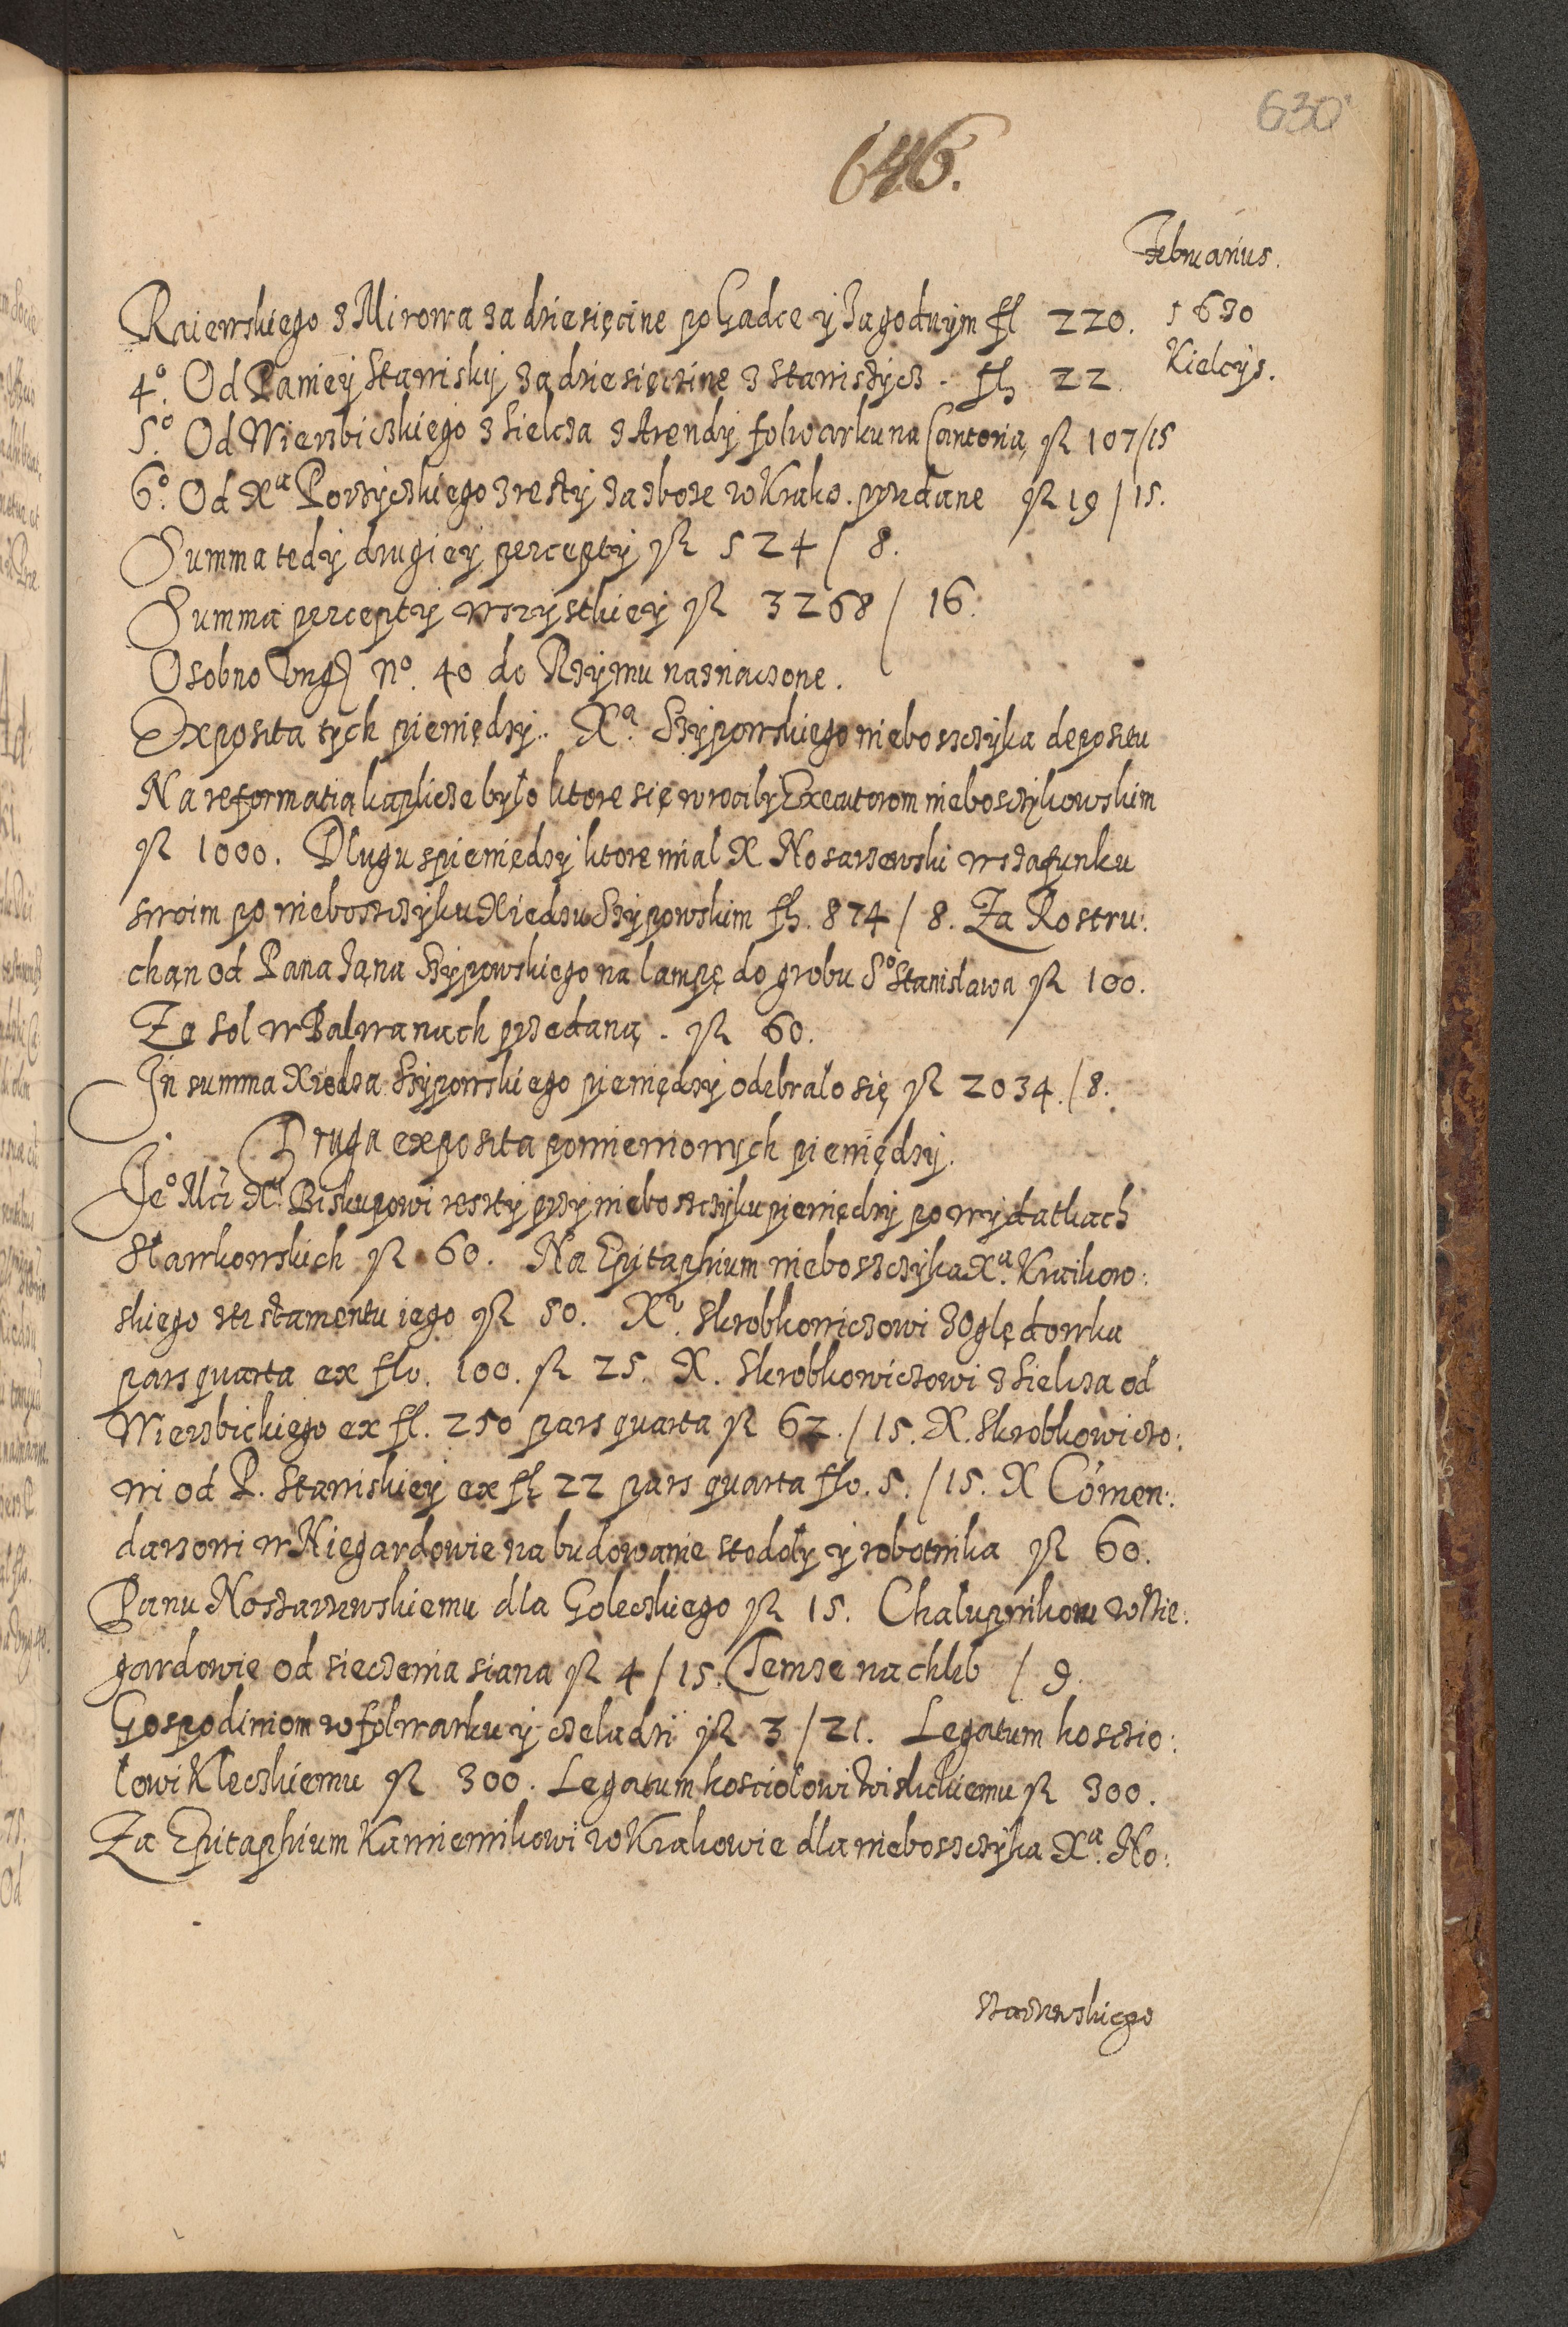 630
646.
Februarius.
1630
Kielcÿs.
Raiewskiego z Mirowa za dziesięcine po Gadce ÿ Jagodnÿm fl 220.
4º. Od Paniey Stawiskÿ za dziesięczine z Stawiszÿcz. fl. 22
5º. Od Wierzbiczkiego z Sielcza z Arendÿ folwarku na Cantoria, fl 107/15
6º. Od Xª Porzÿczkiego z restÿ za zboze w Krako. przedane fl 19/15.
Summa tedÿ drugieÿ perceptÿ fl 524/8.
Summa perceptÿ wszÿstkieÿ fl 3268/16.
Osobno Vng. nº. 40 do Rzÿmu naznaczone.
Exposita tÿch pieniędzÿ. Xª. Szÿpowskiego nieboszczÿka depositu
Na reformatią kaplicze było ktore się wrocilÿ Executorom nieboszczÿkowskim
fl 1000. Dlugu z pieniędzÿ ktore mial X Noszarzewski w szafunku
swoim po nieboszczÿku Xiedzu Szÿpowskim fl. 874/8. Za Rostru:
chan od Pana Jana Szÿpowskiego na lampę do grobu Sº Stanisława fl 100.
Za sol w Balwanach przedaną. fl 60.
In summa Xiedza Szÿpowskiego pieniędzÿ odebralo się fl 2034./8.
Druga exposita pomienionÿch pieniędzÿ.
Jeº Mci Xu Biskupowi resztÿ przÿ nieboszczÿku pieniędzÿ po wÿdatkach
Slawkowskich fl 60. Na Epitaphium nieboszczÿka Xª. Kraikow:
skiego z testamentu iego fl 50. Xu. Skrobkowiczowi z Oględowka
pars quarta ex flo. 100. fl 25. X. Skrobkowiczowi z Sielcza od
Wierzbickiego ex fl. 250 pars quarta fl 62./15. X. Skrobkowiczo:
wi od P. Stawiskieÿ ex fl. 22 pars quarta flo. 5./15. X Comen:
darzowi w Niegardowie na budowanie stodołÿ ÿ robotnika fl 60.
Panu Noszarzewskiemu dla Goleczkiego fl 15. Chalupnikom w Nie:
gardowie od sieczenia siana fl 4/15. Temze na chleb /9.
Gospodiniom w folwarku ÿ czeladzi fl 3/21. Legatum koszcio:
łowi Kleczkiemu fl 300. Legatum kosciołowi Wislickiemu fl 300.
Za Epitaphium Kamiennikowi w Krakowie dla nieboszczÿka Xª. No:
szarzewskiego